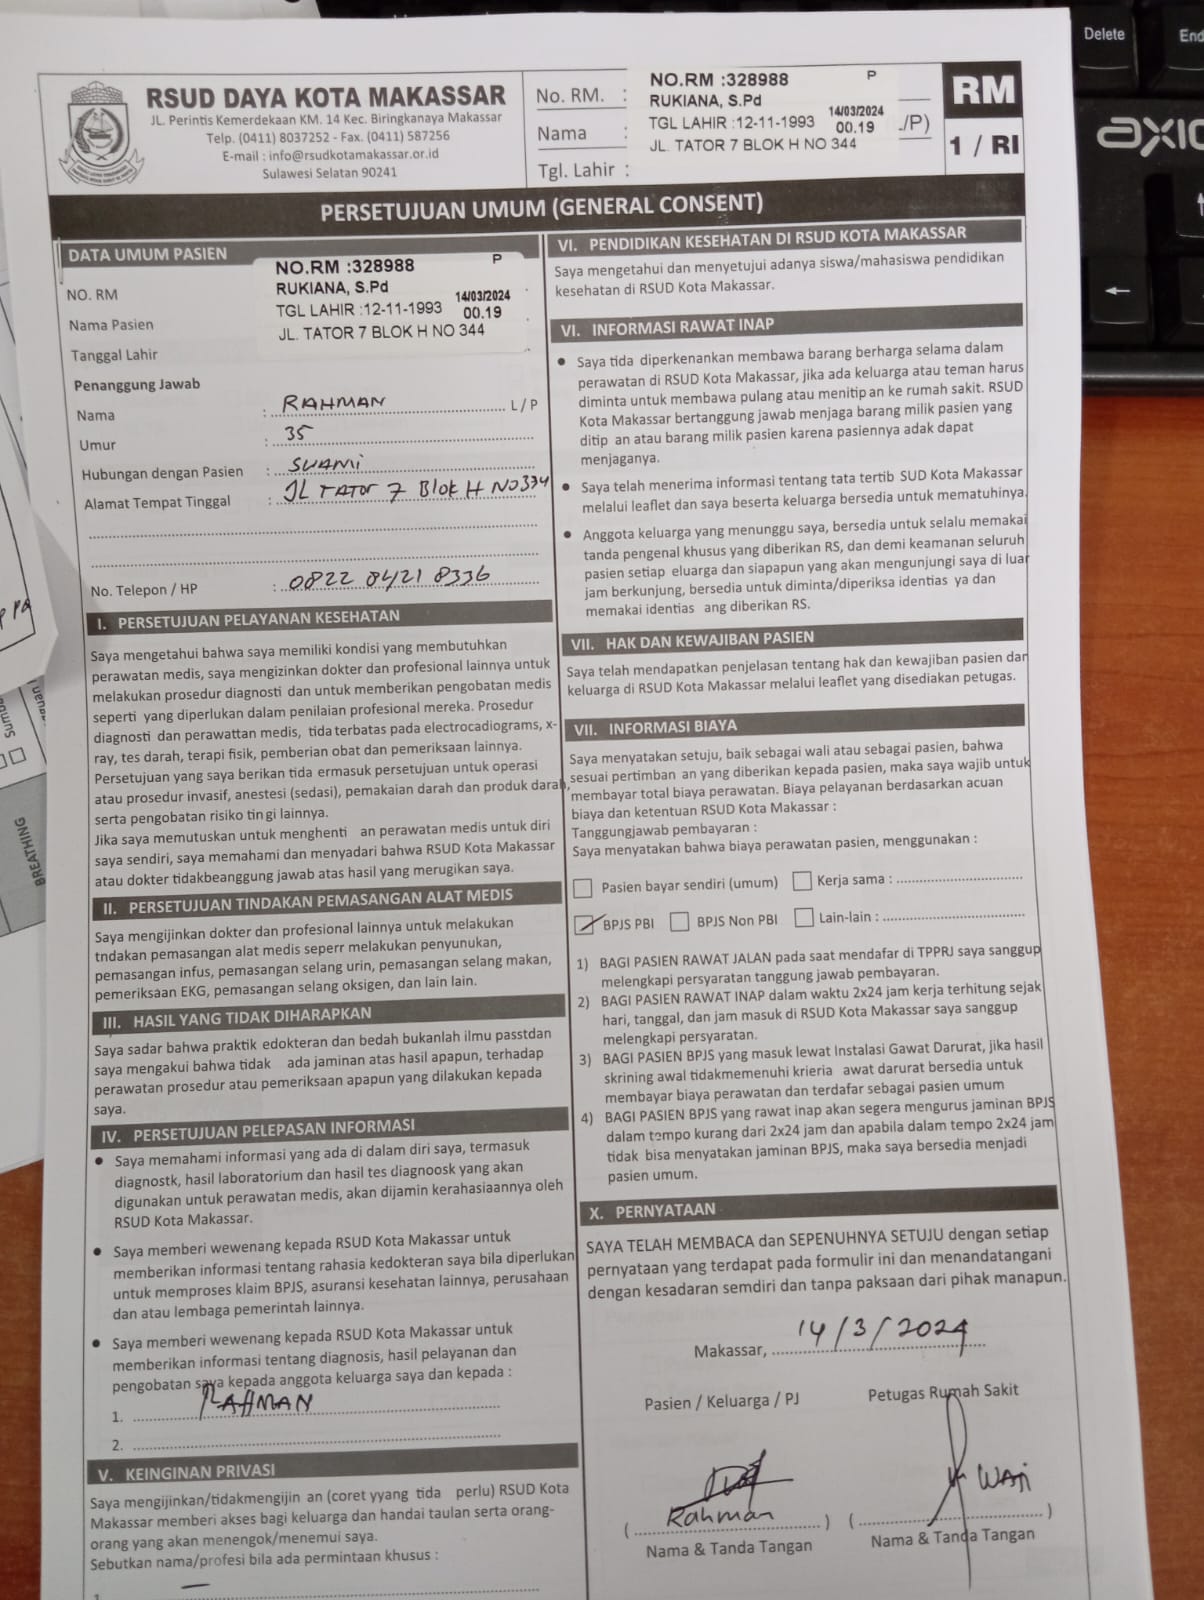 RSUD DAYA KOTA MAKASSAR
JL. Perintis Kemerdekaan KM. 14 Kec. Biringkanaya Makassar
Telp. (0411) 8037252 - Fax. (0411) 587256
E-mail : info@rsudkotamakassar.or.id
Sulawesi Selatan 90241
No. RM. :
Nama :
Tgl. Lahir :
NO.RM :328988 P
RUKIANA, S.Pd
TGL LAHIR :12-11-1993 14/03/2024 00.19
JL. TATOR 7 BLOK H NO 344
/P)
RM
1 / RI
PERSETUJUAN UMUM (GENERAL CONSENT)
DATA UMUM PASIEN
NO. RM
Nama Pasien
Tanggal Lahir
NO.RM :328988 P
RUKIANA, S.Pd
TGL LAHIR :12-11-1993 14/03/2024 00.19
JL. TATOR 7 BLOK H NO 344
Penanggung Jawab
Nama : RAHMAN L / P
Umur : 35
Hubungan dengan Pasien : SUAMI
Alamat Tempat Tinggal : JL TATOR 7 Blok H NO 334
No. Telepon / HP : 0822 8421 8336
I. PERSETUJUAN PELAYANAN KESEHATAN
Saya mengetahui bahwa saya memiliki kondisi yang membutuhkan
perawatan medis, saya mengizinkan dokter dan profesional lainnya untuk
melakukan prosedur diagnosti dan untuk memberikan pengobatan medis
seperti yang diperlukan dalam penilaian profesional mereka. Prosedur
diagnosti dan perawattan medis, tida terbatas pada electrocadiograms, x-
ray, tes darah, terapi fisik, pemberian obat dan pemeriksaan lainnya.
Persetujuan yang saya berikan tida ermasuk persetujuan untuk operasi
atau prosedur invasif, anestesi (sedasi), pemakaian darah dan produk darah,
serta pengobatan risiko tin gi lainnya.
Jika saya memutuskan untuk menghenti an perawatan medis untuk diri
saya sendiri, saya memahami dan menyadari bahwa RSUD Kota Makassar
atau dokter tidakbeanggung jawab atas hasil yang merugikan saya.
II. PERSETUJUAN TINDAKAN PEMASANGAN ALAT MEDIS
Saya mengijinkan dokter dan profesional lainnya untuk melakukan
tndakan pemasangan alat medis seperr melakukan penyunukan,
pemasangan infus, pemasangan selang urin, pemasangan selang makan,
pemeriksaan EKG, pemasangan selang oksigen, dan lain lain.
III. HASIL YANG TIDAK DIHARAPKAN
Saya sadar bahwa praktik edokteran dan bedah bukanlah ilmu passtdan
saya mengakui bahwa tidak ada jaminan atas hasil apapun, terhadap
perawatan prosedur atau pemeriksaan apapun yang dilakukan kepada
saya.
IV. PERSETUJUAN PELEPASAN INFORMASI
• Saya memahami informasi yang ada di dalam diri saya, termasuk
diagnostk, hasil laboratorium dan hasil tes diagnoosk yang akan
digunakan untuk perawatan medis, akan dijamin kerahasiaannya oleh
RSUD Kota Makassar.
• Saya memberi wewenang kepada RSUD Kota Makassar untuk
memberikan informasi tentang rahasia kedokteran saya bila diperlukan
untuk memproses klaim BPJS, asuransi kesehatan lainnya, perusahaan
dan atau lembaga pemerintah lainnya.
• Saya memberi wewenang kepada RSUD Kota Makassar untuk
memberikan informasi tentang diagnosis, hasil pelayanan dan
pengobatan saya kepada anggota keluarga saya dan kepada :
1. RAHMAN
2.
V. KEINGINAN PRIVASI
Saya mengijinkan/tidakmengijin an (coret yyang tida perlu) RSUD Kota
Makassar memberi akses bagi keluarga dan handai taulan serta orang-
orang yang akan menengok/menemui saya.
Sebutkan nama/profesi bila ada permintaan khusus :
VI. PENDIDIKAN KESEHATAN DI RSUD KOTA MAKASSAR
Saya mengetahui dan menyetujui adanya siswa/mahasiswa pendidikan
kesehatan di RSUD Kota Makassar.
VI. INFORMASI RAWAT INAP
• Saya tida diperkenankan membawa barang berharga selama dalam
perawatan di RSUD Kota Makassar, jika ada keluarga atau teman harus
diminta untuk membawa pulang atau menitip an ke rumah sakit. RSUD
Kota Makassar bertanggung jawab menjaga barang milik pasien yang
ditip an atau barang milik pasien karena pasiennya adak dapat
menjaganya.
• Saya telah menerima informasi tentang tata tertib SUD Kota Makassar
melalui leaflet dan saya beserta keluarga bersedia untuk mematuhinya.
• Anggota keluarga yang menunggu saya, bersedia untuk selalu memakai
tanda pengenal khusus yang diberikan RS, dan demi keamanan seluruh
pasien setiap eluarga dan siapapun yang akan mengunjungi saya di luar
jam berkunjung, bersedia untuk diminta/diperiksa identias ya dan
memakai identias ang diberikan RS.
VII. HAK DAN KEWAJIBAN PASIEN
Saya telah mendapatkan penjelasan tentang hak dan kewajiban pasien dan
keluarga di RSUD Kota Makassar melalui leaflet yang disediakan petugas.
VII. INFORMASI BIAYA
Saya menyatakan setuju, baik sebagai wali atau sebagai pasien, bahwa
sesuai pertimban an yang diberikan kepada pasien, maka saya wajib untuk
membayar total biaya perawatan. Biaya pelayanan berdasarkan acuan
biaya dan ketentuan RSUD Kota Makassar :
Tanggungjawab pembayaran :
Saya menyatakan bahwa biaya perawatan pasien, menggunakan :
Pasien bayar sendiri (umum) Kerja sama :
BPJS PBI BPJS Non PBI Lain-lain :
1) BAGI PASIEN RAWAT JALAN pada saat mendafar di TPPRJ saya sanggup
melengkapi persyaratan tanggung jawab pembayaran.
2) BAGI PASIEN RAWAT INAP dalam waktu 2x24 jam kerja terhitung sejak
hari, tanggal, dan jam masuk di RSUD Kota Makassar saya sanggup
melengkapi persyaratan.
3) BAGI PASIEN BPJS yang masuk lewat Instalasi Gawat Darurat, jika hasil
skrining awal tidakmemenuhi krieria awat darurat bersedia untuk
membayar biaya perawatan dan terdafar sebagai pasien umum
4) BAGI PASIEN BPJS yang rawat inap akan segera mengurus jaminan BPJS
dalam tempo kurang dari 2x24 jam dan apabila dalam tempo 2x24 jam
tidak bisa menyatakan jaminan BPJS, maka saya bersedia menjadi
pasien umum.
X. PERNYATAAN
SAYA TELAH MEMBACA dan SEPENUHNYA SETUJU dengan setiap
pernyataan yang terdapat pada formulir ini dan menandatangani
dengan kesadaran semdiri dan tanpa paksaan dari pihak manapun.
Makassar, 14/3/2024
Pasien / Keluarga / PJ
Petugas Rumah Sakit
( Rahman )
Nama & Tanda Tangan
( )
Nama & Tanda Tangan
Delete
End
AXIO
BREATHING